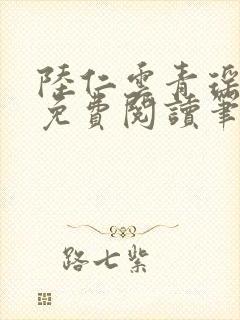 陸仁雲青瑤
免費閱讀筆
路七紫